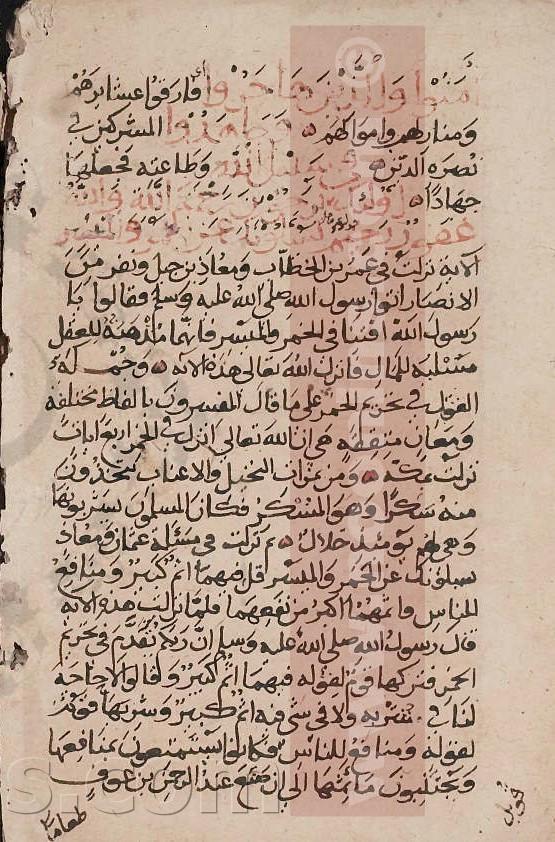 آمَنُوا وَالَّذِينَ هَاجَرُوا أي فارقوا عشائرهم
ومنازلهم وأموالهم وَجَاهَدُوا المشركين في
نصرة الدين فِي سَبِيلِ اللَّهِ وطاعته فجعلها
جهادًا أُولَٰئِكَ يَرْجُونَ رَحْمَتَ اللَّهِ وَاللَّهُ
غَفُورٌ رَحِيمٌ يَسْأَلُونَكَ عَنِ الْخَمْرِ وَالْمَيْسِرِ
الآية نزلت في عمر بن الخطاب ومعاذ بن جبل ونفر من
الانصار اتوا رسول الله صلى الله عليه وسلم فقالوا يا
رسول الله افتنا في الخمر والميسر فانهما مذهبة للعقل
مسلبة للمال فانزل الله تعالى هذه الآية وجملة
القول في تحريم الخمر على ما قال المفسرون بالفاظ مختلفة
ومعان متفقة هي ان الله تعالى انزل في الخمر اربع ايات
نزلت بمكة ومن ثمرات النخيل والاعناب تتخذون
منه سكرًا وهو المسكر فكان المسلمون يشربونها
وهي لهم يومئذ حلال ثم نزلت في مسئلة عمر ومعاذ
يسئلونك عن الخمر والميسر قل فيهما اثم كبير ومنافع
للناس واثمهما اكبر من نفعهما فلما نزلت هذه الآية
قال رسول الله صلى الله عليه وسلم ان ربكم تقدم في تحريم
الخمر فتركها قوم لقوله فيهما اثم كبير وقالوا لا حاجة
لنا في شربه ولا في شي فيه اثم كبير وشربها قوم
لقوله ومنافع للناس فكانوا يستمتعون بمنافعها
ويجتنبون ماثمها الى ان صنع عبد الرحمن بن عوف
طعاما
قوبل